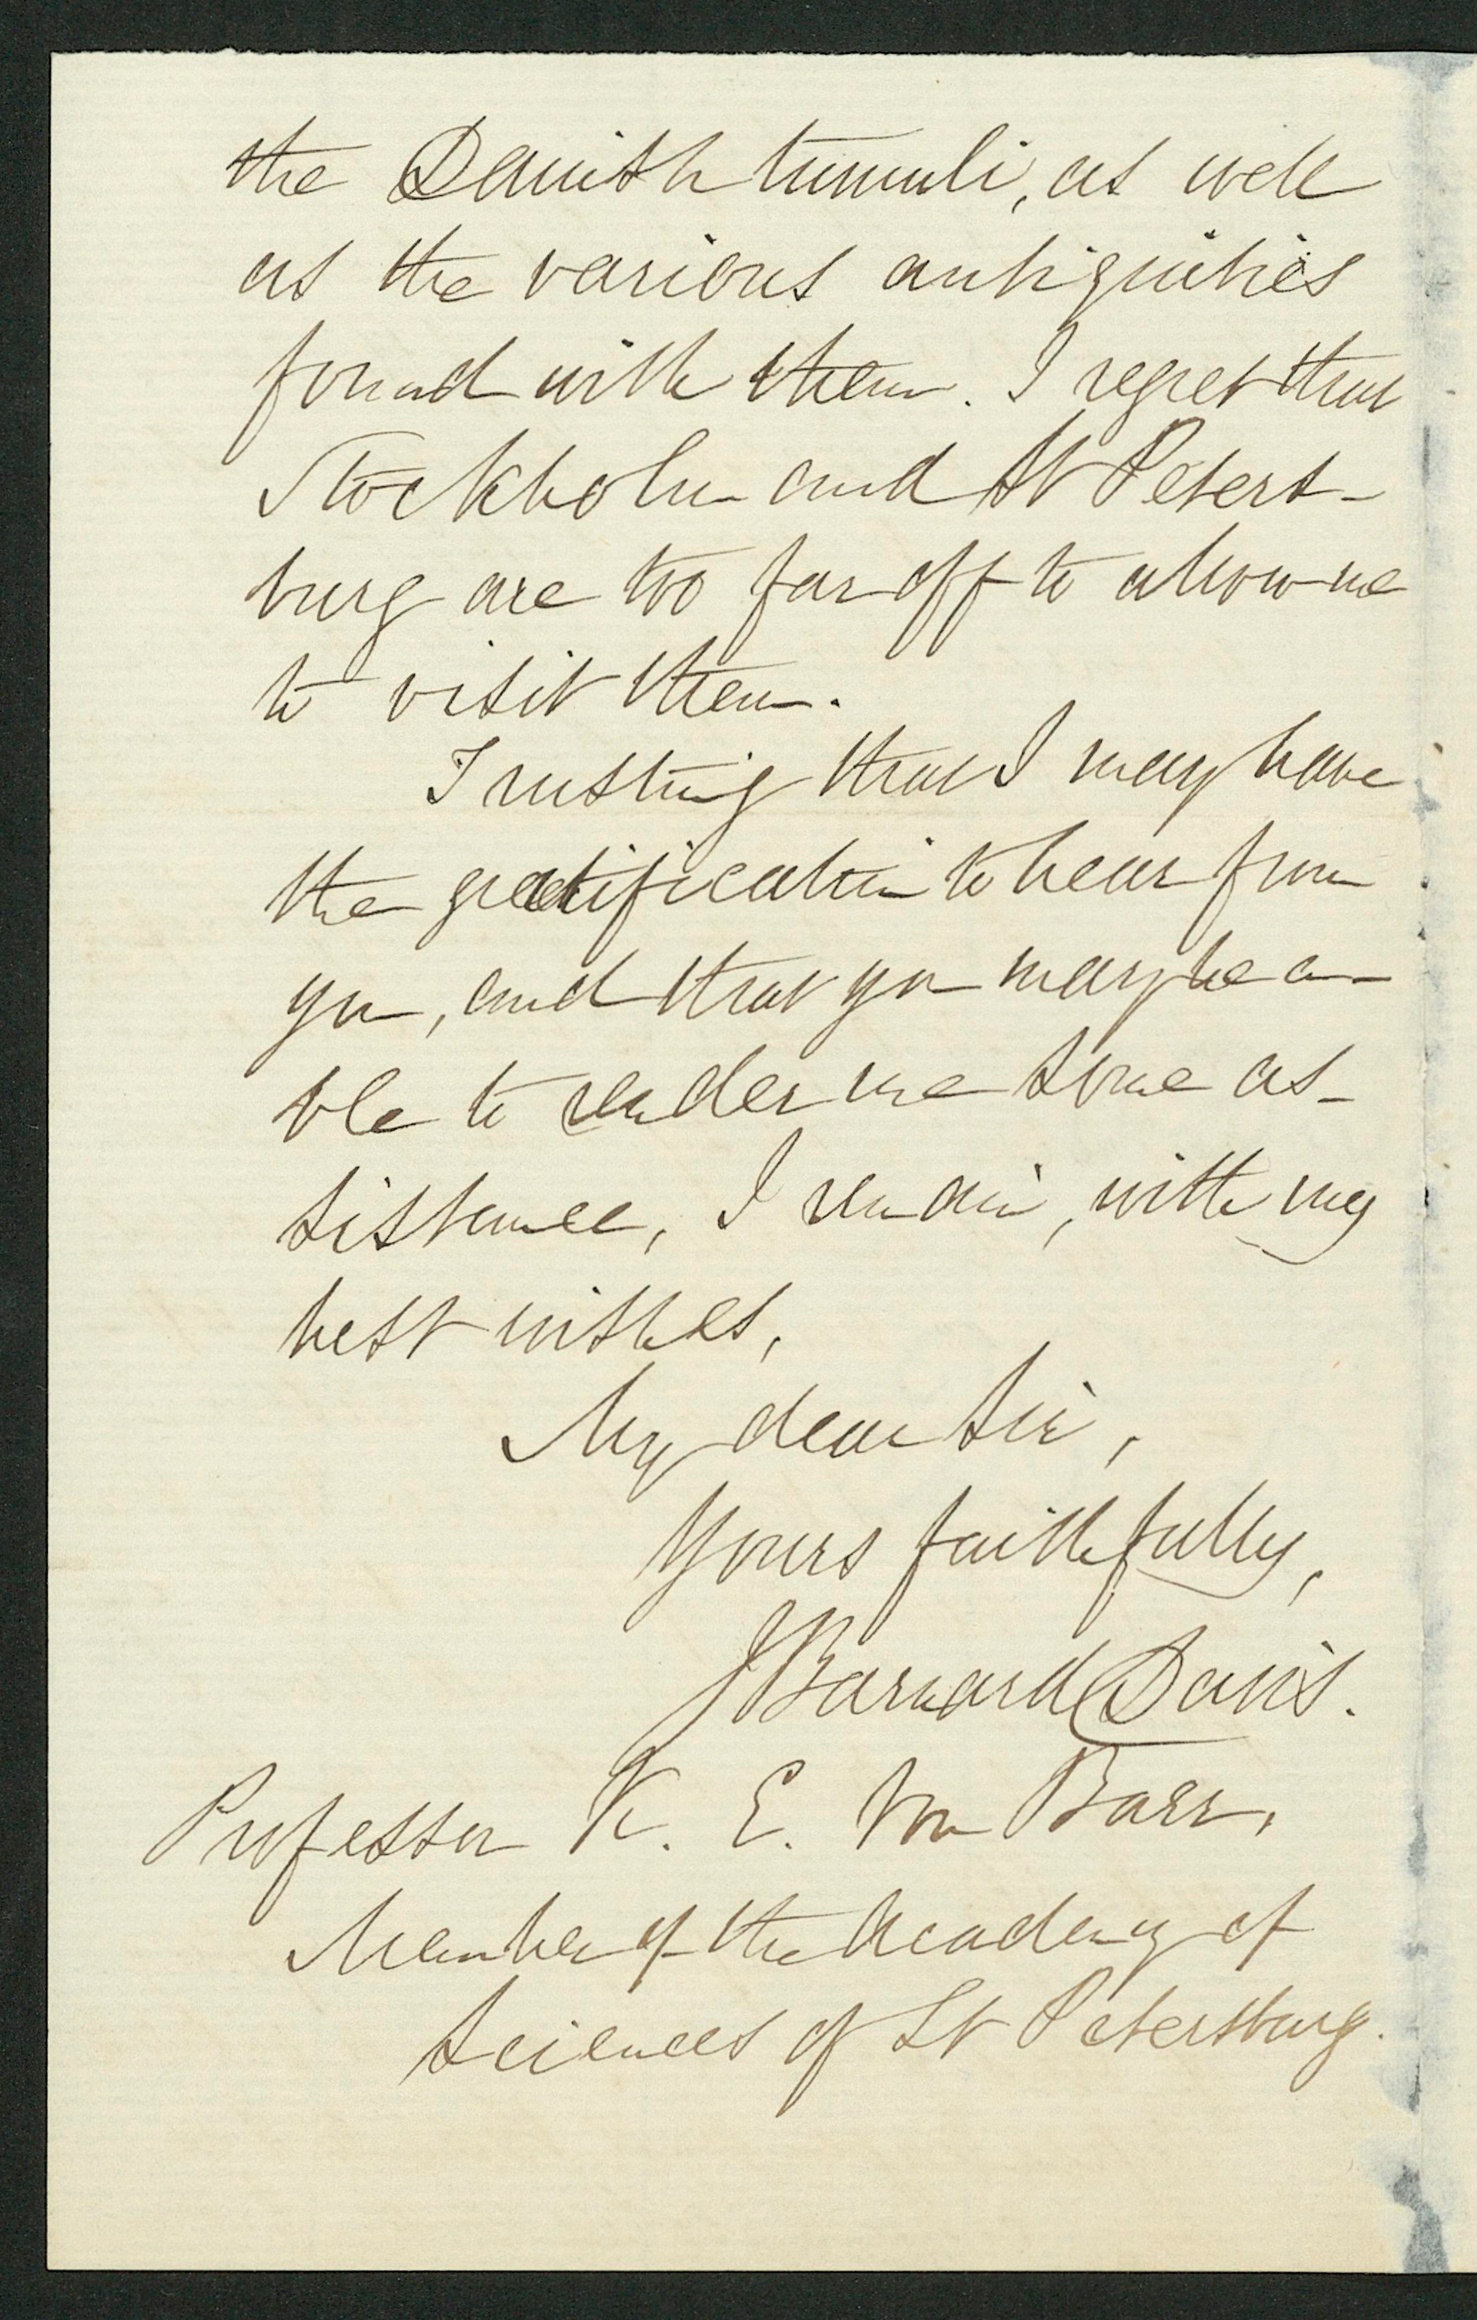 the Danish tumuli, as well
as the various antiquities
found with them. I regret that
Stockholm and St Peters-
burg are too far off to allow me
to visit them.
Trusting that I may have
the gratification to hear from
you, and that you may be a-
ble to render me some as-
sistance, I remain, with my
best wishes,
My dear Sir,
Yours faithfully,
J Barnard Davis.
Professor K. E. von Baer,
Member of the Academy of
Sciences of St Petersburg.